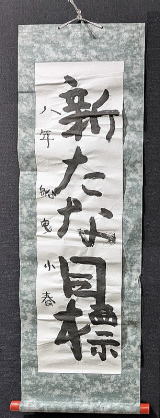 新たな目標
八年 鮑 曳 小春